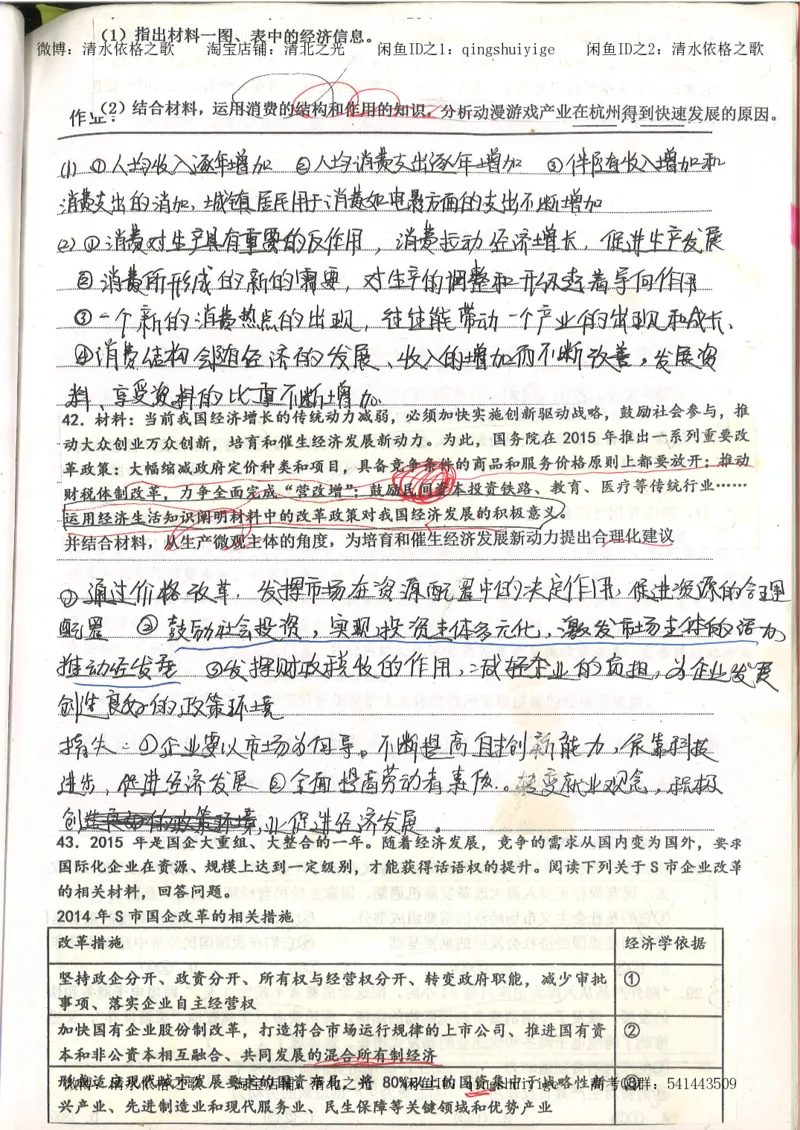 （1）指出材料一图、表中的经济信息。
微博：清水依格之歌 淘宝店铺：清北之光 闲鱼ID之1：qingshuiyige 闲鱼ID之2：清水依格之歌
（2）结合材料，运用消费的结构和作用的知识，分析动漫游戏产业在杭州得到快速发展的原因。
作业：
(1) ①人均收入逐年增加 ②人均消费支出逐年增加 ③伴随着收入增加和
消费支出的消加，城镇居民用于消费如电影方面的支出不断增加
(2) ①消费对生产具有重要的反作用，消费拉动经济增长，促进生产发展
②消费所形成的新的需要，对生产的调整和升级起着导向作用
③一个新的消费热点的出现，往往能带动一个产业的出现和成长、
④消费结构会随经济的发展、收入的增加而不断改善，发展资
料、享受资料的比重不断增加.
42．材料：当前我国经济增长的传统动力减弱，必须加快实施创新驱动战略，鼓励社会参与，推
动大众创业万众创新，培育和催生经济发展新动力。为此，国务院在 2015 年推出一系列重要改
革政策：大幅缩减政府定价种类和项目，具备竞争条件的商品和服务价格原则上都要放开；推动
财税体制改革，力争全面完成“营改增”；鼓励民间资本投资铁路、教育、医疗等传统行业……
运用经济生活知识阐明材料中的改革政策对我国经济发展的积极意义，
并结合材料，从生产微观主体的角度，为培育和催生经济发展新动力提出合理化建议
①通过价格改革，发挥市场在资源配置中的决定作用，促进资源的合理
配置 ②鼓励社会投资，实现投资主体多元化，激发市场主体的活力
推动经发展 ③发挥财政税收的作用，减轻企业的负担，为企业发展
创造良好的政策环境
措失：①企业要以市场为但导。不断提高自主创新能力，依靠科技
进步，促进经济发展 ②全面提高劳动者素质..转变就业观念，积极
创业促进经济发展。
43．2015 年是国企大重组、大整合的一年。随着经济发展，竞争的需求从国内变为国外，要求
国际化企业在资源、规模上达到一定级别，才能获得话语权的提升。阅读下列关于 S 市企业改革
的相关材料，回答问题。
2014 年 S 市国企改革的相关措施
改革措施 经济学依据
坚持政企分开、政资分开、所有权与经营权分开、转变政府职能，减少审批 ①
事项、落实企业自主经营权
加快国有企业股份制改革，打造符合市场运行规律的上市公司、推进国有资 ②
本和非公资本相互融合、共同发展的混合所有制经济
形成适应现代城市发展要求的国资布局，将 80%以上的国资集中于战略性新 ③
兴产业、先进制造业和现代服务业、民生保障等关键领域和优势产业
微博：清水依格之歌 淘宝店铺：清北之光 高考QQ群：541443509